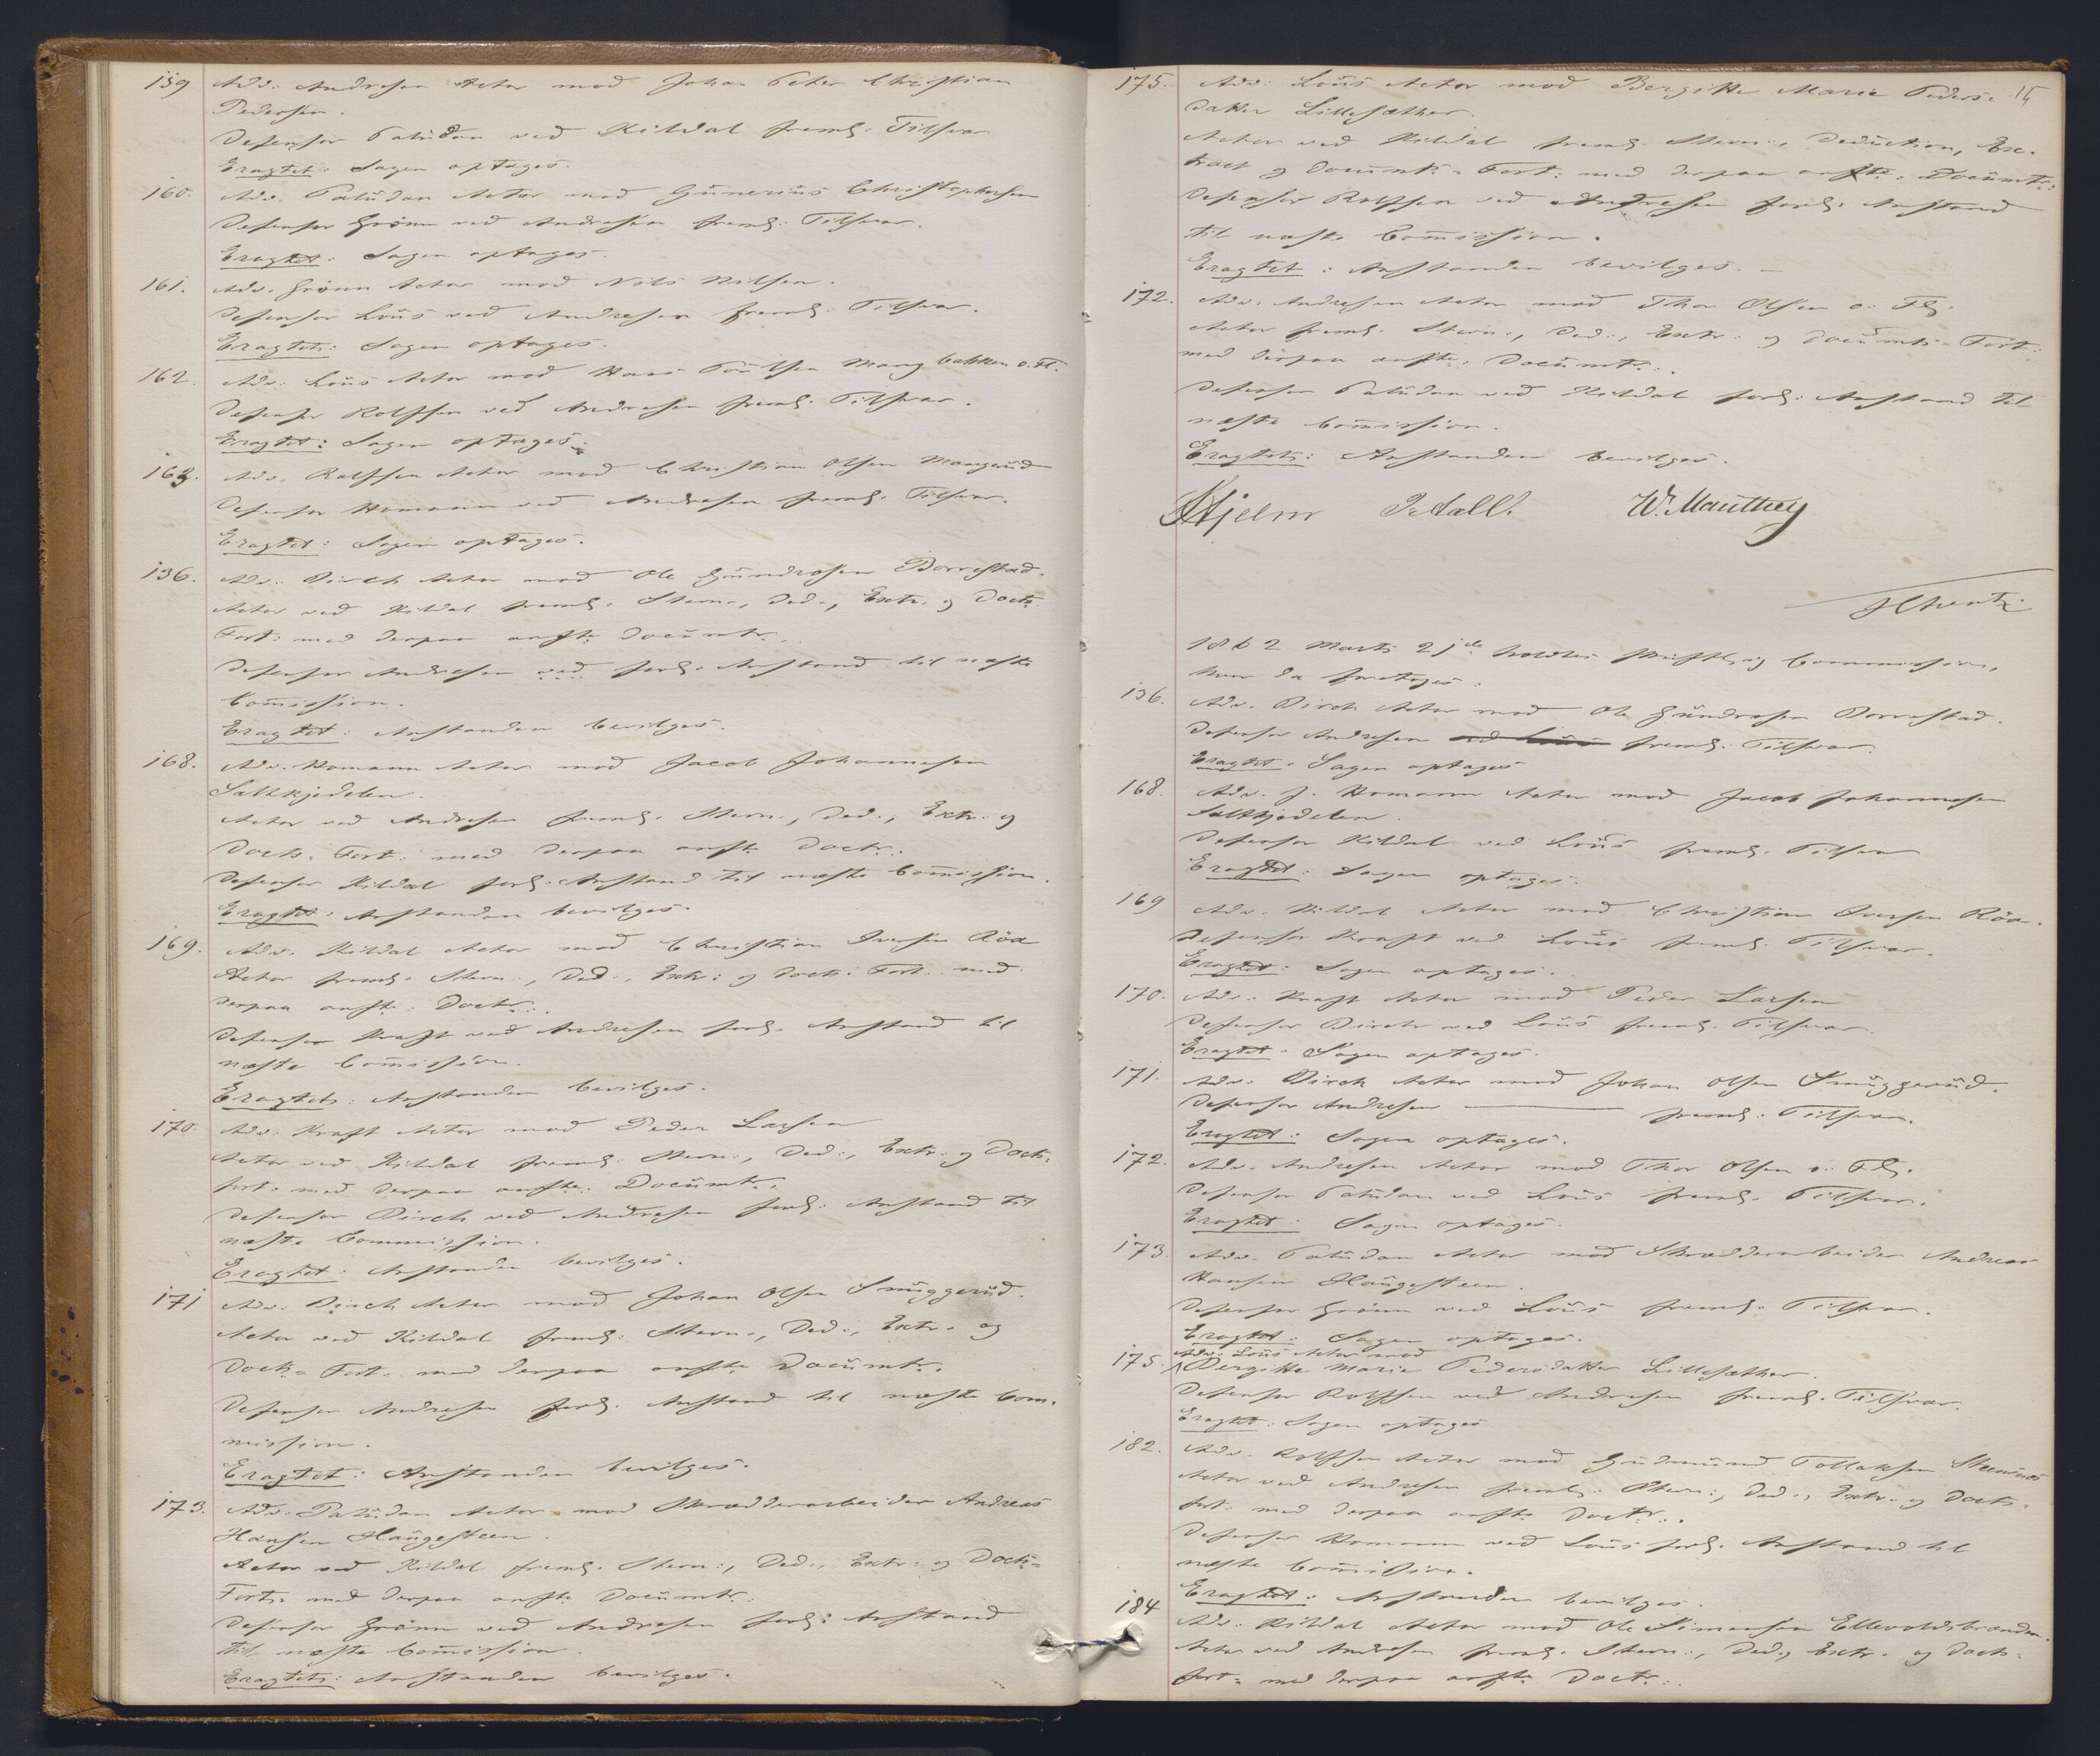 159 Adv. Andresen Actor mod Johan Peter Christian
Pedersen.
Defensor Paludan ved Kildal freml. Tilsvar
Eragtet: Sagen optages.
160. Adv. Paludan Actor mod Gunerius Christophersen
Defensor Grönn ved Andresen freml. Tilsvar.
Eragtet: Sagen optages.
161. Adv. Grönn Actor mod Nils Nilsen.
Defensor Lous ved Andresen freml. Tilsvar.
Eragtet: Sagen optages.
162. Adv. Lous Actor mod Hans Poulsen Mangbakken o. Fl.
Defensor Rolfsen ved Andresen freml. Tilsvar.
Eragtet: Sagen optages.
163. Adv. Rolfsen Actor mod Christian Olsen
Defensor Homann ved Andresen freml. Tilsvar.
Eragtet: Sagen optages.
136. Adv. Birch Actor mod Ole Gundrosen Borrestad.
Actor ved Kildal freml. Stevn., Ded., Extr. og Doct.
Fort. med derpaa anfte Documtr.
Defensor Andresen ved forl. Anstand til næste
Comission.
Eragtet: Anstanden bevilges.
168. Adv. Homann Actor mod Jacob Johannesen
Saltkjedelen.
Actor ved Andresen freml. Stevn., Ded., Extr. og
Docts. Fort. med derpaa anfte Doctr.
Defensor Kildal forl. Anstand til næste Comission.
Eragtet: Anstanden bevilges.
169. Adv. Kildal Actor mod Christian Iversen Röa
Actor freml. Stevn., Ded., Extr. og Doct. Fort. med
derpaa anfte. Doctr.
Defensor Kraft ved Andresen forl. Anstand til
næste Comission.
Eragtet: Anstanden bevilges.
170. Adv. Kraft Actor mod Peder Larsen
Actor ved Kildal freml. Stevn., Ded., Extr. og Doct.
fort. med derpaa anfte. Documtr.
Defensor Birch ved Andresen forl. Anstand til
næste Commission.
Eragtet: Anstanden bevilges.
171 Adv. Birch Actor mod Johan Olsen Snuggerud.
Actor ved Kildal freml. Stevn., Ded., Extr. og
Doct. Fort. med derpaa anfte Documtr.
Defensor Andresen forl. Anstand til næste Com-
mission.
Eragtet: Anstanden bevilges.
173. Adv. Paludan Actor mod Skrædderarbeider Andreas
Hansen Haugesteen.
Actor ved Kildal freml. Stevn., Ded., Extr. og Doct.
Fort. med derpaa anfte Documtr.
Defensor Grönn ved Andresen forl. Anstand
til næste Comission.
Eragtet: Anstanden bevilges.
15
175. Adv. Lous Actor mod Bergitte Marie Peders-
datter Lillesæther.
Actor ved Kildal freml. Stevn., Deduction, Ex-
tract og Documts. Fort. med derpaa anfte. Documtr.
Defensor Rolfsen ved Andresen forl. Anstand
til næste Comission.
Eragtet: Anstanden bevilges.
172. Adv. Andresen Actor mod Thor Olsen o. Fl.
Actor freml. Stevn., Ded., Extr. og Documts. Fort.
med derpaa anfte. Documtr.
Defensor Paludan ved Kildal forl. Anstand til
næste Comission.
Eragtet: Anstanden bevilges.
Hjelm P. Aall W. Manthey
1862 Marts 21de holdtes skriftlig Commission,
hvor da foretoges:
136. Adv. Birch Actor mod Ole Gundrosen Borrestad.
Defensor Andresen ved Lous freml. Tilsvar.
Eragtet: Sagen optages
168. Adv. J. Homann Actor mod Jacob Johannesen
Saltkjedelen.
Defensor Kildal ved Lous freml. Tilsvar
Eragtet: Sagen optages.
169 Adv. Kildal Actor mod Christian Iversen Röa.
Defensor Kraft ved Lous freml. Tilsvar.
Eragtet: Sagen optages.
170. Adv. Kraft Actor mod Peder Larsen
Defensor Birch ved Lous freml. Tilsvar.
Eragtet: Sagen optages.
171. Adv. Birch Actor mod Johan Olsen Snuggerud.
Defensor Andresen freml. Tilsvar.
Eragtet: Sagen optages.
172. Adv. Andresen Actor mod Thor Olsen o. Fl.
Defensor Paludan ved Lous freml. Tilsvar.
Eragtet: Sagen optages.
173. Adv. Paludan Actor mod Skrædderarbeider Andreas
Hansen Haugesteen.
Defensor Grönn ved Lous freml. Tilsvar.
Eragtet: Sagen optages.
Adv. Lous Actor mod
175. Bergitte Marie Pedersdatter Lillesæther.
Defensor Rolfsen ved Andresen freml. Tilsvar.
Eragtet: Sagen optages
182. Adv. Rolfsen Actor mod Gudmund Tollaksen
Actor ved Andresen freml. Stevn., Ded., Extr. og Doct.
fort. med derpaa anfte Doctr.
Defensor Homann ved Lous forl. Anstand til
næste Comission.
Eragtet: Anstanden bevilges.
184 Adv. Kildal Actor mod Ole Simensen Ellevoldsbranden.
Actor ved Andresen freml. Stevn., Ded., Extr. og Docts.
fort. med derpaa anfte Doctr.